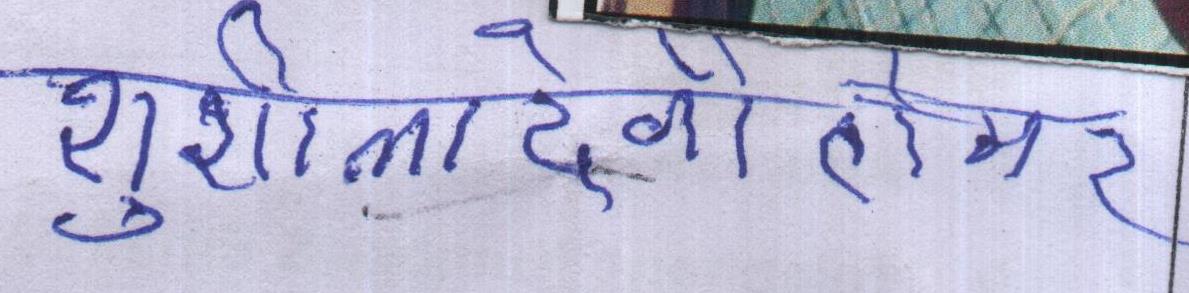 शुशीला देवी तोमर